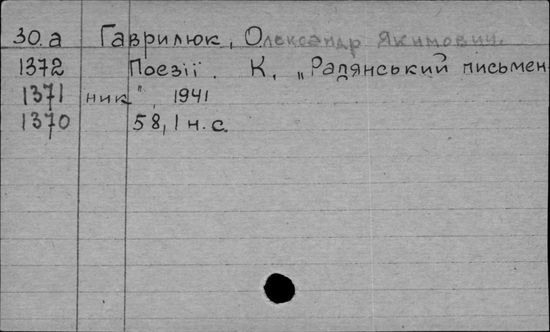 30.а Гаврилюк, Олександр Якимович.
1372 Поезії. К, „Радянський письмен
1371 ник", 1941
1370 58, 1 н. с.